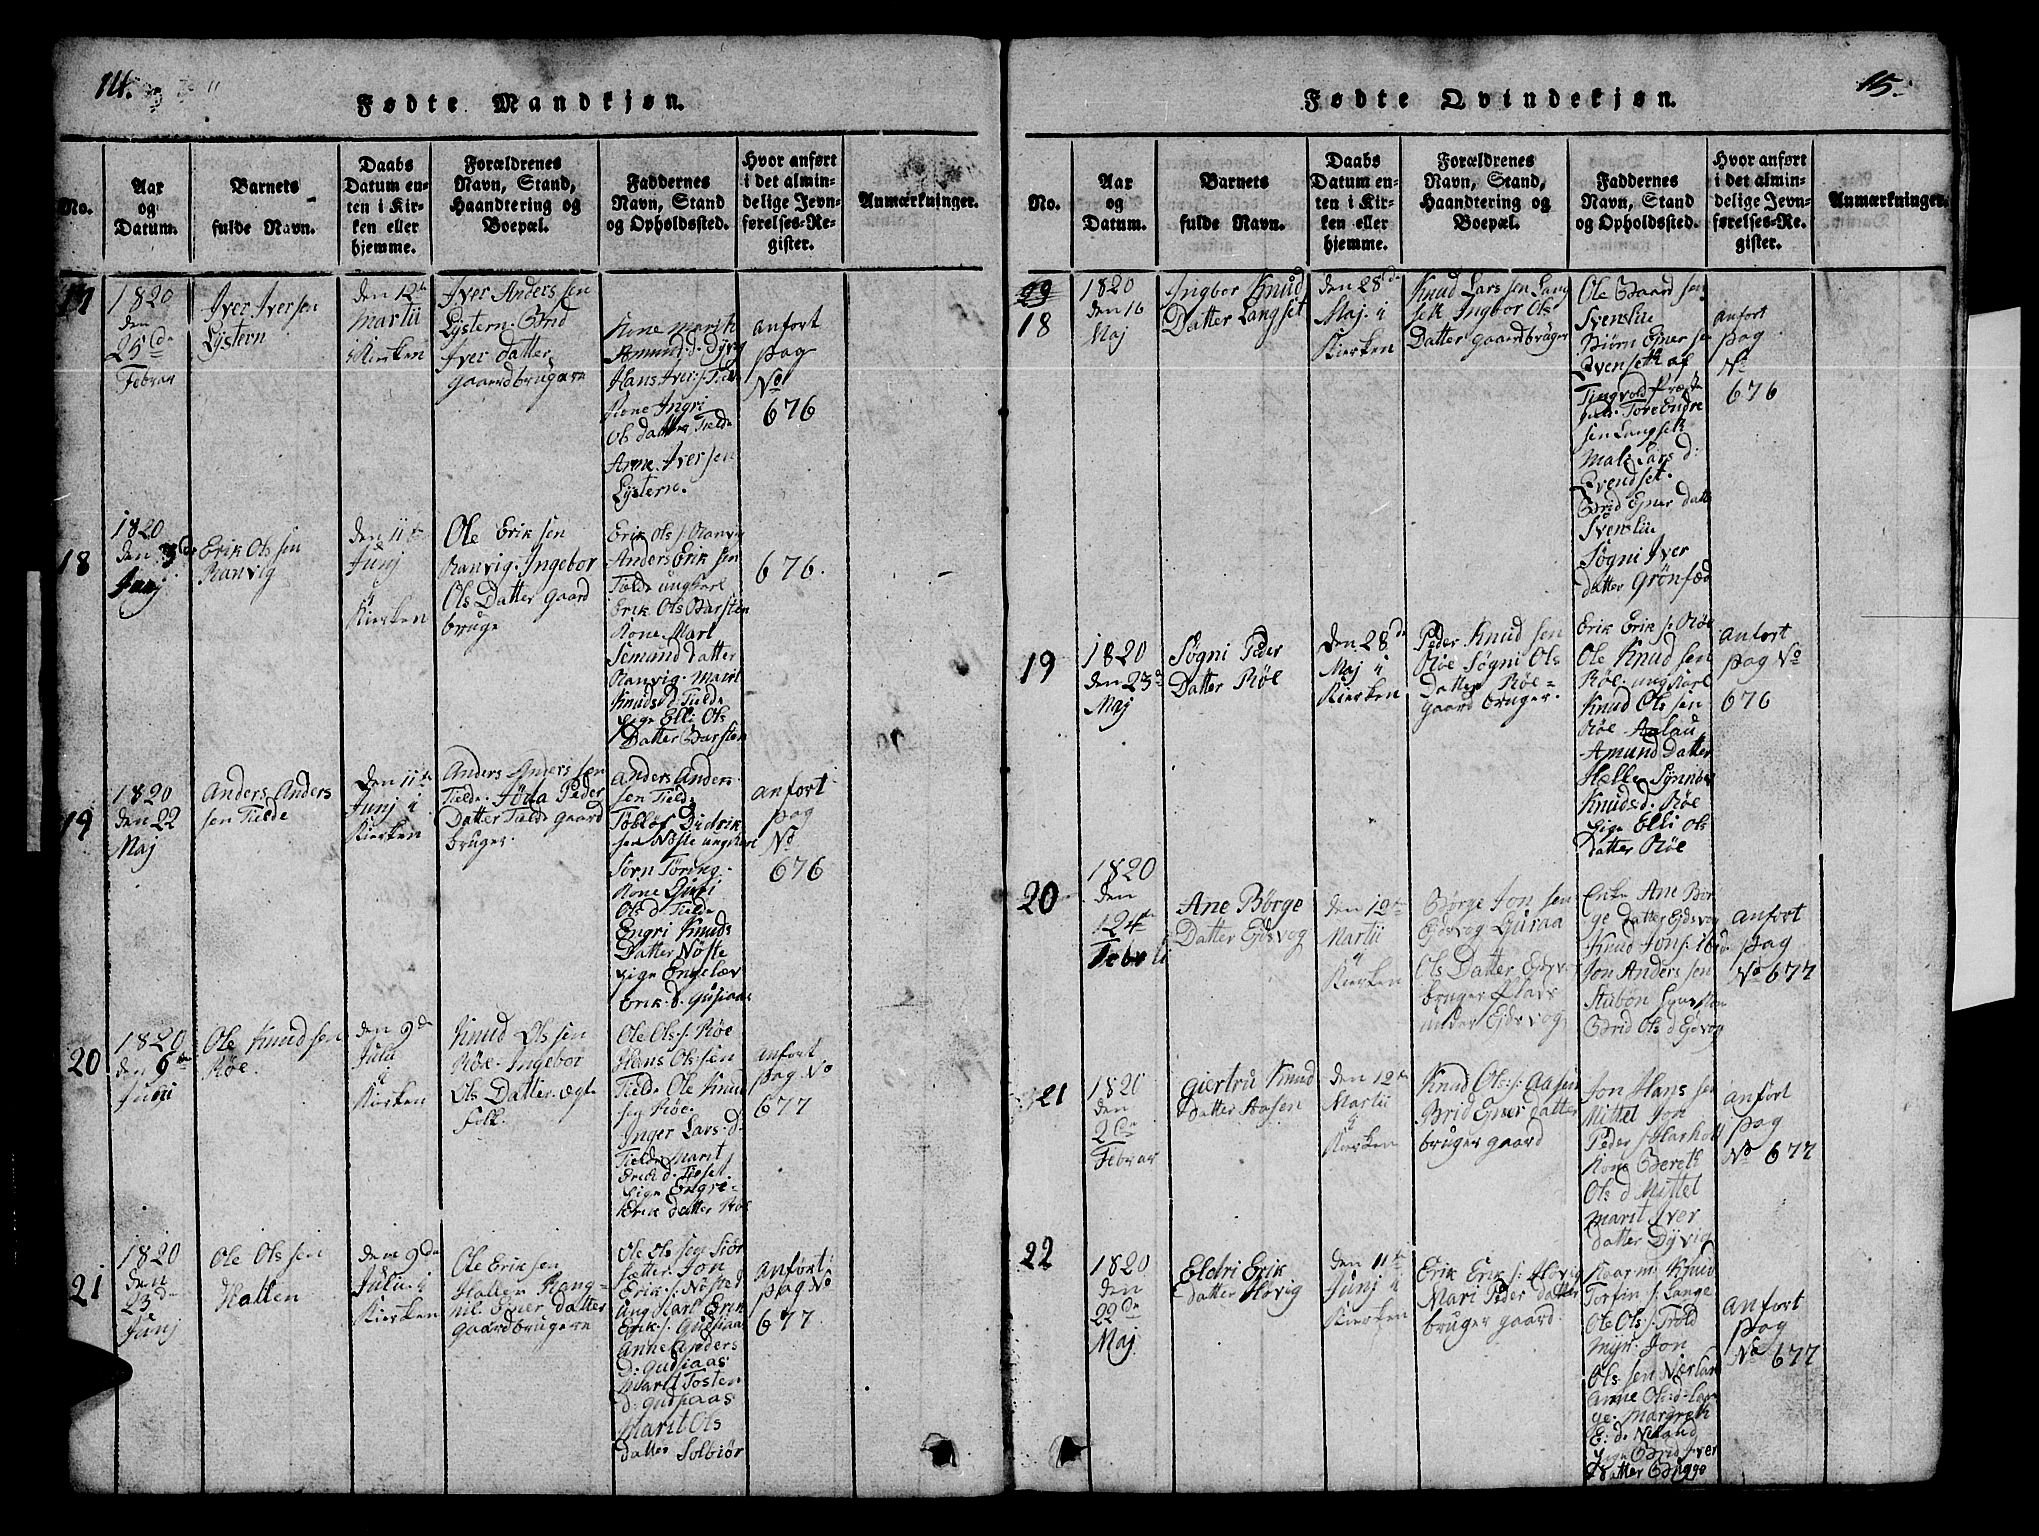 14.
Fødte Mandkjøn.
No.
Aar
og
Datum.
Barnets
fulde Navn.
Daabs
Datum en-
ten i Kir-
ken eller
hjemme.
Forældrenes
Navn, Stand,
Haandtering og
Boepæl.
Faddernes
Navn, Stand
og Opholdssted.
Hvor anført
i det almin-
delige Jevn-
førelses-Re-
gister.
Anmærkninger.
17
1820
den
25de
Febrar
Iver Iversen
Lystern
den 12te
Martii
i Kierken
Iver Anders sen
Lystern. Brid
Iver datter
gaardbrugere
Kone Marith
Amund. d. Dyvig
Hans Iver s: Tield
Kone Ingri
Ols datter Tielde
Arne Iver sen
Lystern.
anfort
pag
No
676
18
1820
den 3de
Junj
Erik Ols sen
Ranvig
den 11te
Junj
i
Kierken
Ole Erik sen
Ranvig. Ingebor
Ols Datter gaard
bruge
Erik Ols s: Ranvig
Anders Erik sen
Tielde ungkarl
Erik Ols Barsten
Kone Mari
Semund datter
Ranvig. Marit
Knuds d Tielde
Pige Elli Ols
Datter Barsten
676.
19
1820
den 22
Maj
Anders Anders
sen Tielde
den 11te
Junj i
Kierken
Anders Anders sen
Tielde. Peder
Datter Tielde gaard
bruger.
Anders Anders
sen Tielde
Didrik
sen Nøste ungkarl
Kone
Ols d Tielde
Engri Knuds
Datter Nøste
pige
Erik. d. Gusiaas
anfort
pag
No
676
20
1820
den 6te
Juni
Ole Knud sen
Røe.
den 9de
Julii
i
Kierken
Knud Ols sen
Røe. Ingebor
Ols Datter. ægte
folk.
Ole Ols s: Røe
Hans Ols sen
Tielde Ole Knud
sen Røe.
Inger Lars. d.
Tielde Marit
Pige Engri
Erik datter Røe
anfort
pag No
677
21
1820
den
23de
Junj
Ole Ols sen
Hatten
den 9de
Julii i
Kierken
Ole Erik sen
Hatten Rang=
nil Einer datter
gaardbrugere
Ole Ols sen
Jon
Erik s: Nøsted
ung Karl Erik
Erik s: Gusiaas
Anne Anders
d: Gusiaas
Marit Tosten
d: Gusiaas
Marit Ols
datter Solbiør
anfort
pag No
677.
15.
Fødte Qvindekjøn.
No.
Aar
og
Datum.
Barnets
fulde Navn.
Daabs
Datum en-
ten i Kir-
ken eller
hjemme.
Forældrenes
Navn, Stand,
Haandtering og
Boepæl.
Faddernes
Navn, Stand
og Opholdssted.
Hvor anført
i det almin-
delige Jevn-
førelses-Re-
gister.
Anmærkninger.
18
1820
den 16
Maj
Ingbor Knud
Datter Langset
den 28de
Maj. i
Kierken
Knud Lars sen Lang
sek Ingbor Ols
Datter gaardbruger
Ole Baard sen
Svensliu
Biørn Ejner sen
Evensetk af
Tingvold Præste
Tore Endre
sen Langsetk
Mali Lars d:
Evendset.
Brid Ejner datter
Svensliu
Søgni Iver
datter Grønsæd
anfort
pag
No
676
19
1820
den 23de
Maj
Søgni Peder
Datter Røe
den 28de
Maj i
Kierken
Peder Knud sen
Røe Søgni Ols
datter Røe=
gaard bruger.
Erik Erik s: Røe
Ole Knud sen
Røe. ungkarl
Knud Ols sen
Røe
Amund Datter
Hælle
Knuds d. Røe
Pige Elli Ols
datter Røe
anfort
pag No
676
20
1820
den
124de
Febrli
Ane Børge
Datter Ejdsvog
den 12te
Martii
i
Kierken
Børge Jon sen
Ejdsvog Guraa
Ols Datter Ejdsvog
bruger Plads
under Ejdsvog
Enke Ane Bør
ge datter Ejdsvog
Knud Jon s: ibid.
Jon Anders sen
Stubøn
Brid Ols d Ejdsvog
anfort
pag
No 677
21
1820
den
2de
Febrar
Giertru Knud
datter Aasen
den 12te
Martii
i
Kierken
Knud Ols: s: Aasen
Brid Ejner datter
bruger gaard
Jon Hans sen
Mittet Jon
Peder s:
Kone Beretk
Ols d Mittet
Marit Iver
datter Dyvig
anfort
pag
No 677
22
1820
den
22de
Maj
Eldri Erik
datter Høvig
den 11te
Junj i
Kierken
Erik Erik s: Høvig
Mari Peder datter
bruger gaard.
Torfin s: Lange
Ole Ols: s: Trold
myr. Jon
Ols sen Nerland
Anne Ols: d: Lan
ge. Margretk
E: d. Neland
Pige Brid Iver
Datter Bugge
anfort
pag
No 677